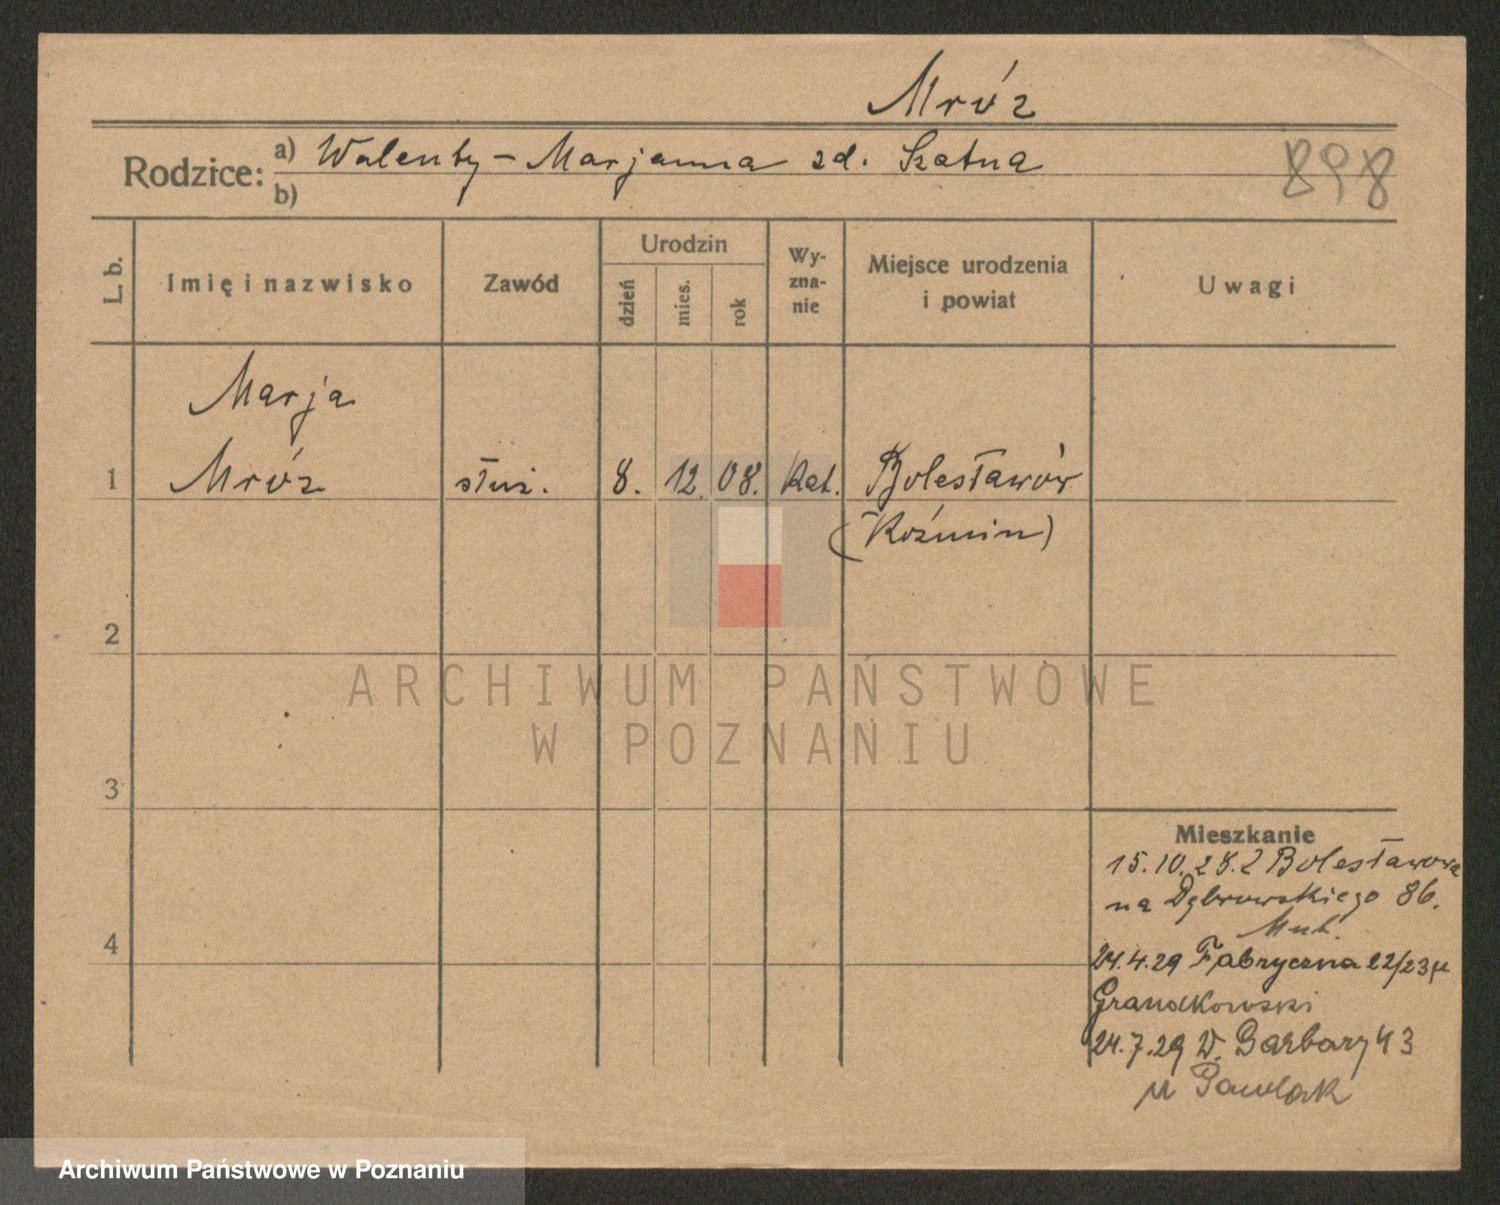 Mróz
Rodzice: a) Walenty – Marjanna zd. Szatna
b)
898
L. b. Imię i nazwisko Zawód Urodzin dzień mies. rok Wyznanie Miejsce urodzenia i powiat Uwagi
Marja
1 Mróz służ. 8. 12. 08. Kat. Bolesławów
(Koźmin)
2
ARCHIWUM PAŃSTWOWE
W POZNANIU
3
Mieszkanie
15.10.28. z Bolesławowa
na Dąbrowskiego 86.
4
24.4.29 Fabryczna 22/23
Grandkowski
24.7.29 W. Garbary 43
u Pawlak
Archiwum Państwowe w Poznaniu